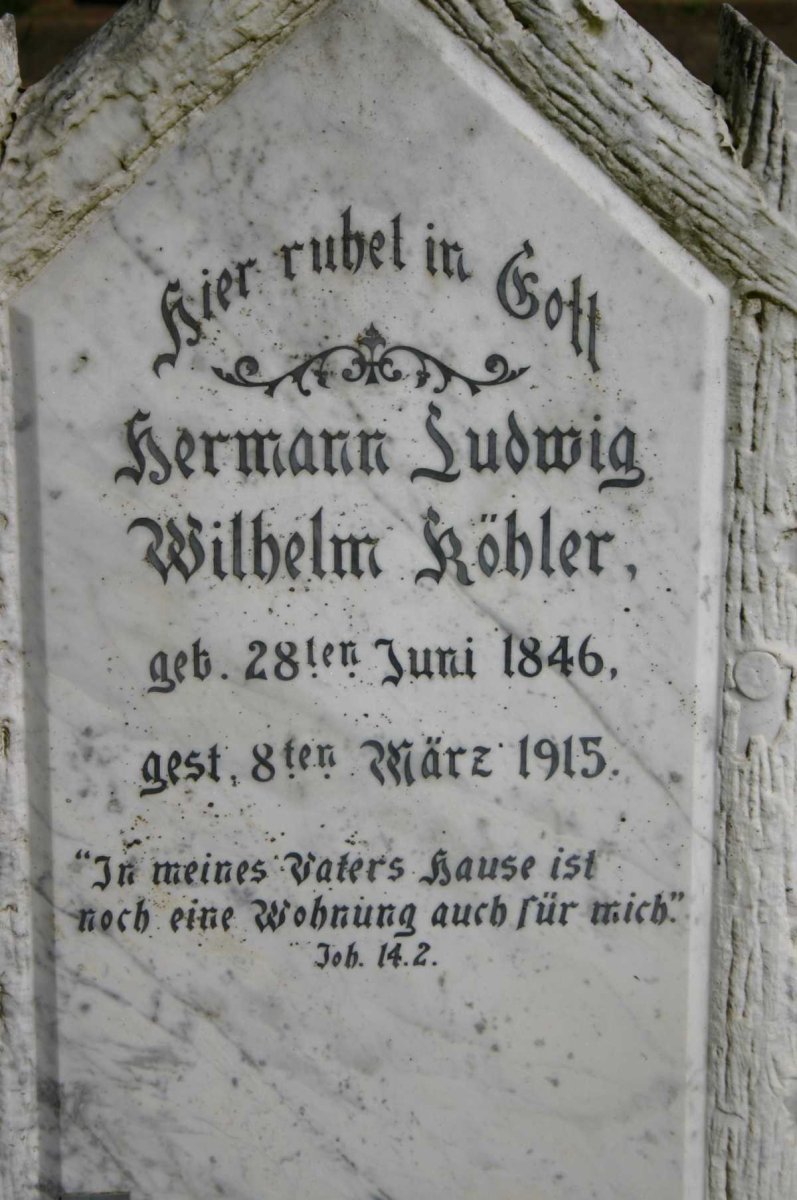 Hier ruhet in Gott
Hermann Ludwig
Wilhelm Köhler,
geb. 28ten Juni 1846,
gest. 8ten März 1915.
"In meines Vaters Hause ist
noch eine Wohnung auch für mich."
Joh. 14.2.